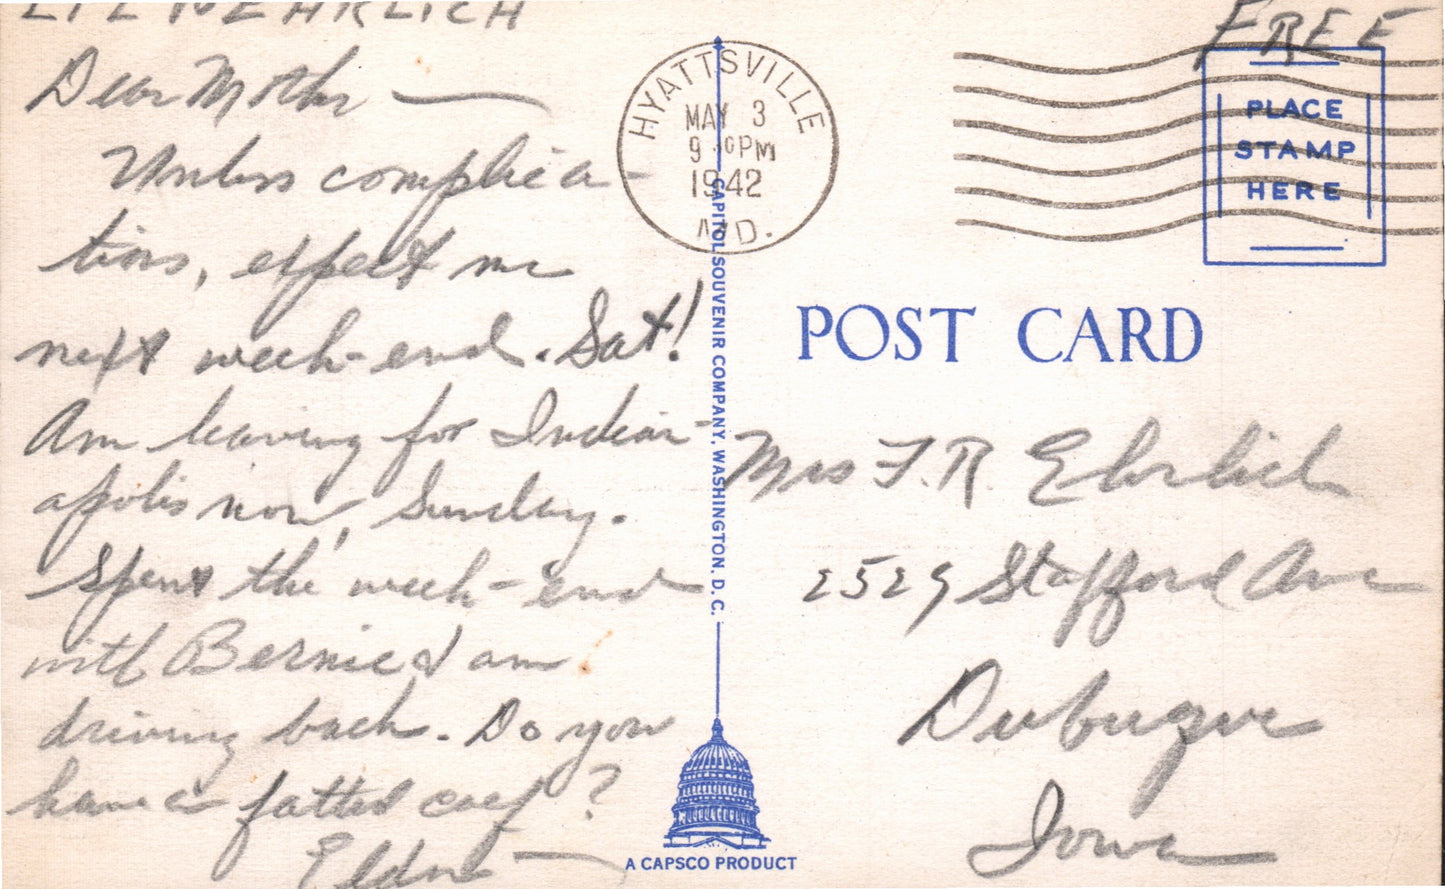 EHRLICH
Dear Mother —
Unless complica-
tions, expect me
next week-end. Sat!
Am leaving for Indian-
apolis now, Sunday.
Spent the week-end
with Bernie & am
driving back. Do you
have a fatted calf?
Eldon
HYATTSVILLE
MAY 3
9 PM
1942
MD.
FREE
PLACE
STAMP
HERE
POST CARD
CAPITOL SOUVENIR COMPANY, WASHINGTON, D. C.
Mrs F. R. Ehrlich
2529 Stafford Ave
Dubuque
Iowa
A CAPSCO PRODUCT